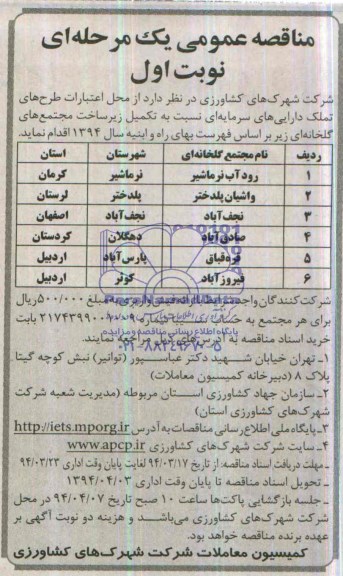 مناقصه عمومی یک مرحله‌ای
نوبت اول
شرکت شهرک‌های کشاورزی در نظر دارد از محل اعتبارات طرح‌های
تملک دارایی‌های سرمایه‌ای نسبت به تکمیل زیرساخت مجتمع‌های
گلخانه‌ای زیر بر اساس فهرست بهای راه و ابنیه سال ۱۳۹۴ اقدام نماید.
ردیف نام مجتمع گلخانه‌ای شهرستان استان
۱ رود آب نرماشیر نرماشیر کرمان
۲ واشیان پلدختر پلدختر لرستان
۳ نجف‌آباد نجف‌آباد اصفهان
۴ صادق‌آباد دهگلان کردستان
۵ قره‌قباق پارس‌آباد اردبیل
۶ فیروزآباد کوثر اردبیل
شرکت‌کنندگان واجد شرایط با ارائه فیش واریزی به مبلغ ۵۰۰/۰۰۰ریال
برای هر مجتمع به حساب شماره بابت
خرید اسناد مناقصه به آدرس‌های ذیل مراجعه نمایند.
پایگاه اطلاع رسانی مناقصه و مزایده
۱- تهران خیابان شهید دکتر عباسپور (توانیر) نبش کوچه گیتا
پلاک ۸ (دبیرخانه کمیسیون معاملات)
۲- سازمان جهاد کشاورزی استان مربوطه (مدیریت شعبه شرکت
شهرک‌های کشاورزی استان)
۳- پایگاه ملی اطلاع رسانی مناقصات به آدرس http://iets.mporg.ir
۴- سایت شرکت شهرک‌های کشاورزی www.apcp.ir
ـ مهلت دریافت اسناد مناقصه از تاریخ ۹۴/۰۳/۱۷ لغایت پایان وقت اداری ۹۴/۰۳/۲۳
ـ تحویل اسناد مناقصه تا پایان وقت اداری ۱۳۹۴/۰۴/۰۳
ـ جلسه بازگشایی پاکت‌ها ساعت ۱۰ صبح تاریخ ۹۴/۰۴/۰۷ در محل
شرکت شهرک‌های کشاورزی می‌باشد و هزینه دو نوبت آگهی بر
عهده برنده مناقصه خواهد بود.
کمیسیون معاملات شرکت شهرک‌های کشاورزی